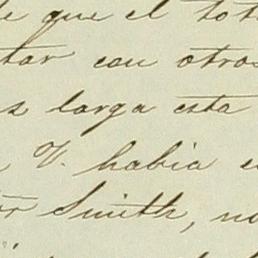 de que el tot
tar con otros
s larga esta
V. habia e
or Smith, no